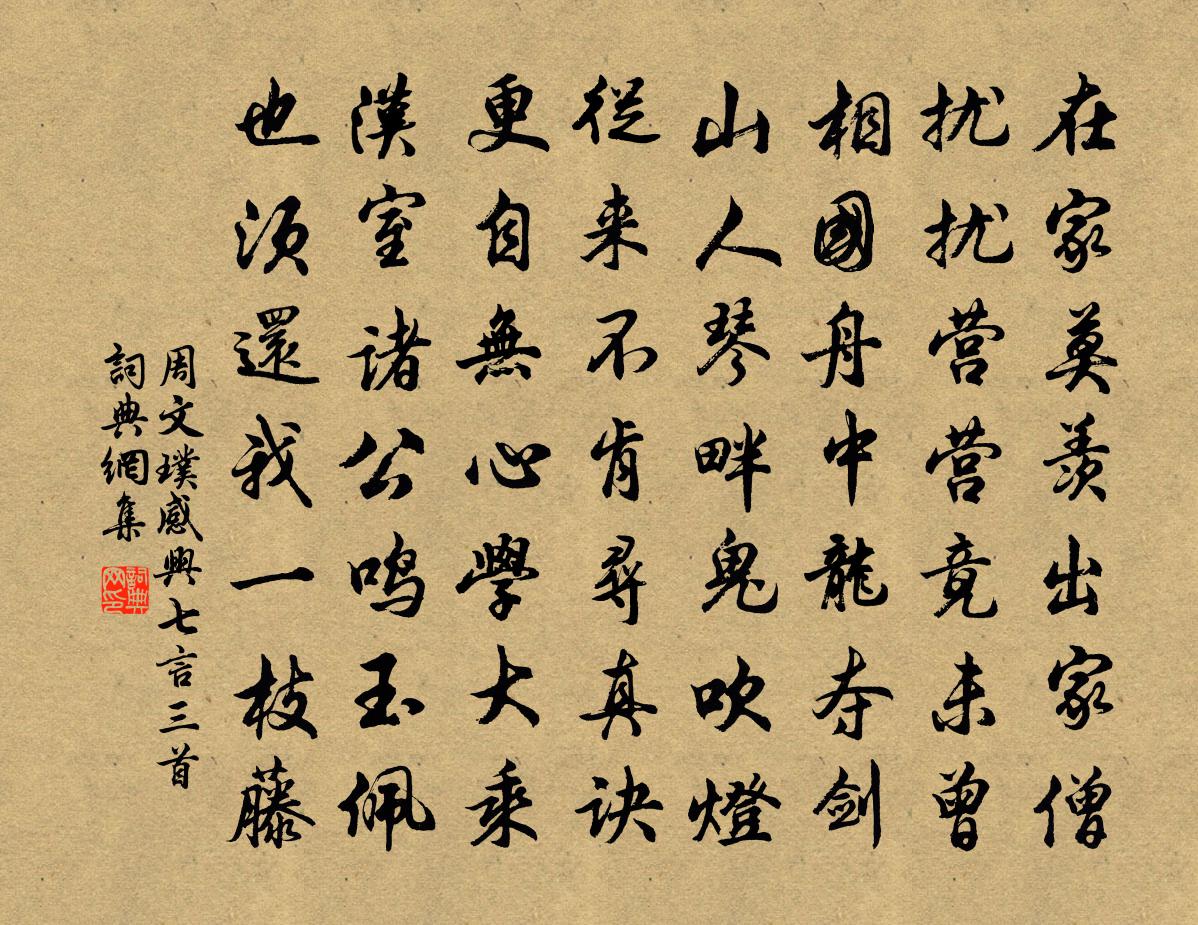 在家莫羨出家僧
扰扰营营竟未曾
相國舟中龍夺剑
山人琴畔鬼吹燈
從来不肯尋真诀
更自無心學大乘
漢室诸公鸣玉佩
也须還我一枝藤
周文璞感興七言三首
詞典網集
詞典网印